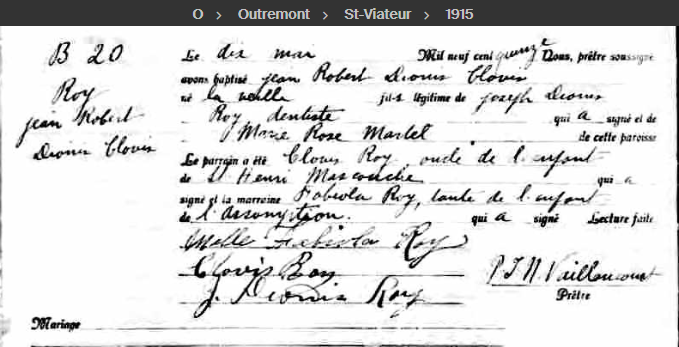 O > Outremont > St-Viateur > 1915
B 20
Roy
jean Robert
Dionis Clovis
Le dix mai Mil neuf cent quinze Nous, prêtre soussigné
avons baptisé jean Robert Dionis Clovis
né la veille fils légitime de joseph Dionis
Roy dentiste qui a signé et de
Marie Rose Martel de cette paroisse
Le parrain a été Clovis Roy, oncle de l'enfant
de St Henri Mascouche qui a
signé et la marraine Fabiola Roy, tante de l'enfant
de l'assomption. qui a signé Lecture faite
Melle Fabiola Roy
Clovis Roy
J. Dionis Roy
P.J.N. Vaillancourt
Prêtre
Mariage